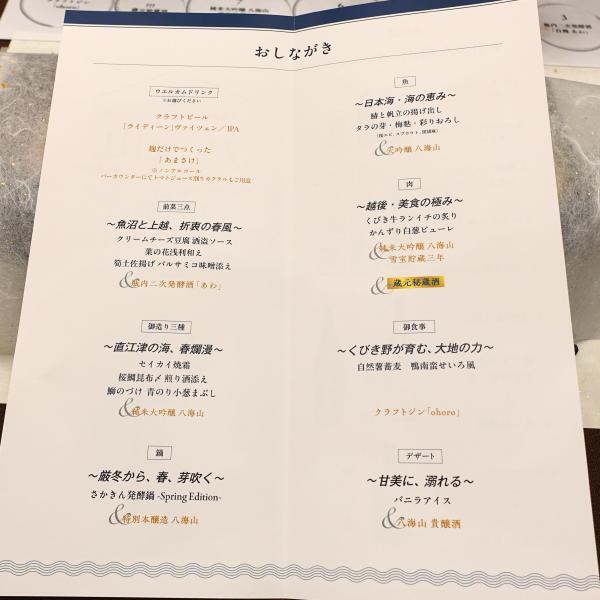 おしながき
ウエルカムドリンク
※お選びください
クラフトビール
「ライディーン」ヴァイツェン／IPA
麹だけでつくった
「あまさけ」
※ノンアルコール
バーカウンターにてトマトジュース割りカクテルもご用意
前菜三点
～魚沼と上越、折衷の春風～
クリームチーズ豆腐 酒盗ソース
菜の花浅利和え
筍土佐揚げ バルサミコ味噌添え
&瓶内二次発酵酒「あわ」
御造り三種
～直江津の海、春爛漫～
セイカイ焼霜
桜鯛昆布〆 煎り酒添え
鰤のづけ 青のり小葱まぶし
&純米大吟醸 八海山
鍋
～厳冬から、春、芽吹く～
さかきん発酵鍋 -Spring Edition-
&特別本醸造 八海山
魚
～日本海・海の恵み～
鰆と帆立の揚げ出し
タラの芽・梅麩・彩りおろし
&大吟醸 八海山
肉
～越後・美食の極み～
くびき牛ランイチの炙り
かんずり白葱ピューレ
&純米大吟醸 八海山
雪室貯蔵三年
&蔵元秘蔵酒
御食事
～くびき野が育む、大地の力～
自然薯蕎麦 鴨南蛮せいろ風
クラフトジン「ohoro」
デザート
～甘美に、溺れる～
バニラアイス
&八海山 貴醸酒